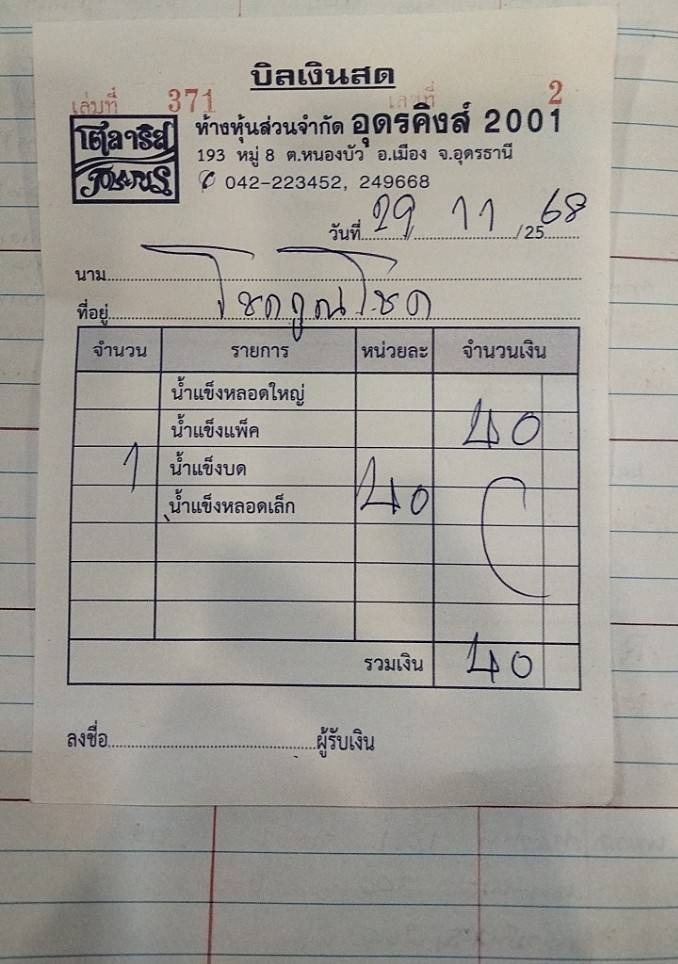 บิลเงินสด
เล่มที่ 371 เลขที่ 2
โพลาริส
POLARIS
ห้างหุ้นส่วนจำกัด อุดรคิงส์ 2001
193 หมู่ 8 ต.หนองบัว อ.เมือง จ.อุดรธานี
042-223452, 249668
วันที่ 29 11 /25 68
นาม
ที่อยู่ โชคคูณโชค
จำนวน รายการ หน่วยละ จำนวนเงิน
น้ำแข็งหลอดใหญ่
น้ำแข็งแพ็ค 40
1 น้ำแข็งบด
น้ำแข็งหลอดเล็ก 40
รวมเงิน 40
ลงชื่อ ผู้รับเงิน